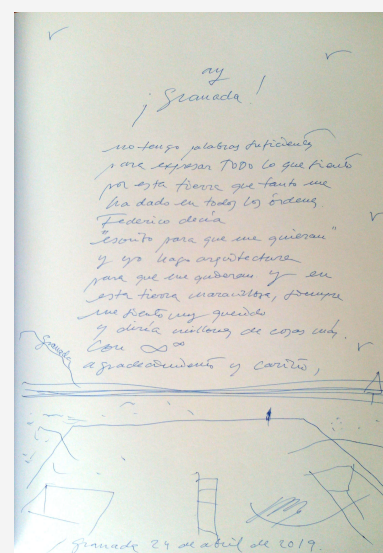 ay
¡Granada!
no tengo palabras suficientes
para expresar TODO lo que siento
por esta tierra que tanto me
ha dado en todos los órdenes.
Federico decía
"escribo para que me quieran"
y yo hago arquitectura
para que me quieran y en
esta tierra maravillosa, siempre
me siento muy querido
y diría millones de cosas más.
Con ∞∞
agradecimiento y cariño,
Granada
Granada 24 de abril de 2019